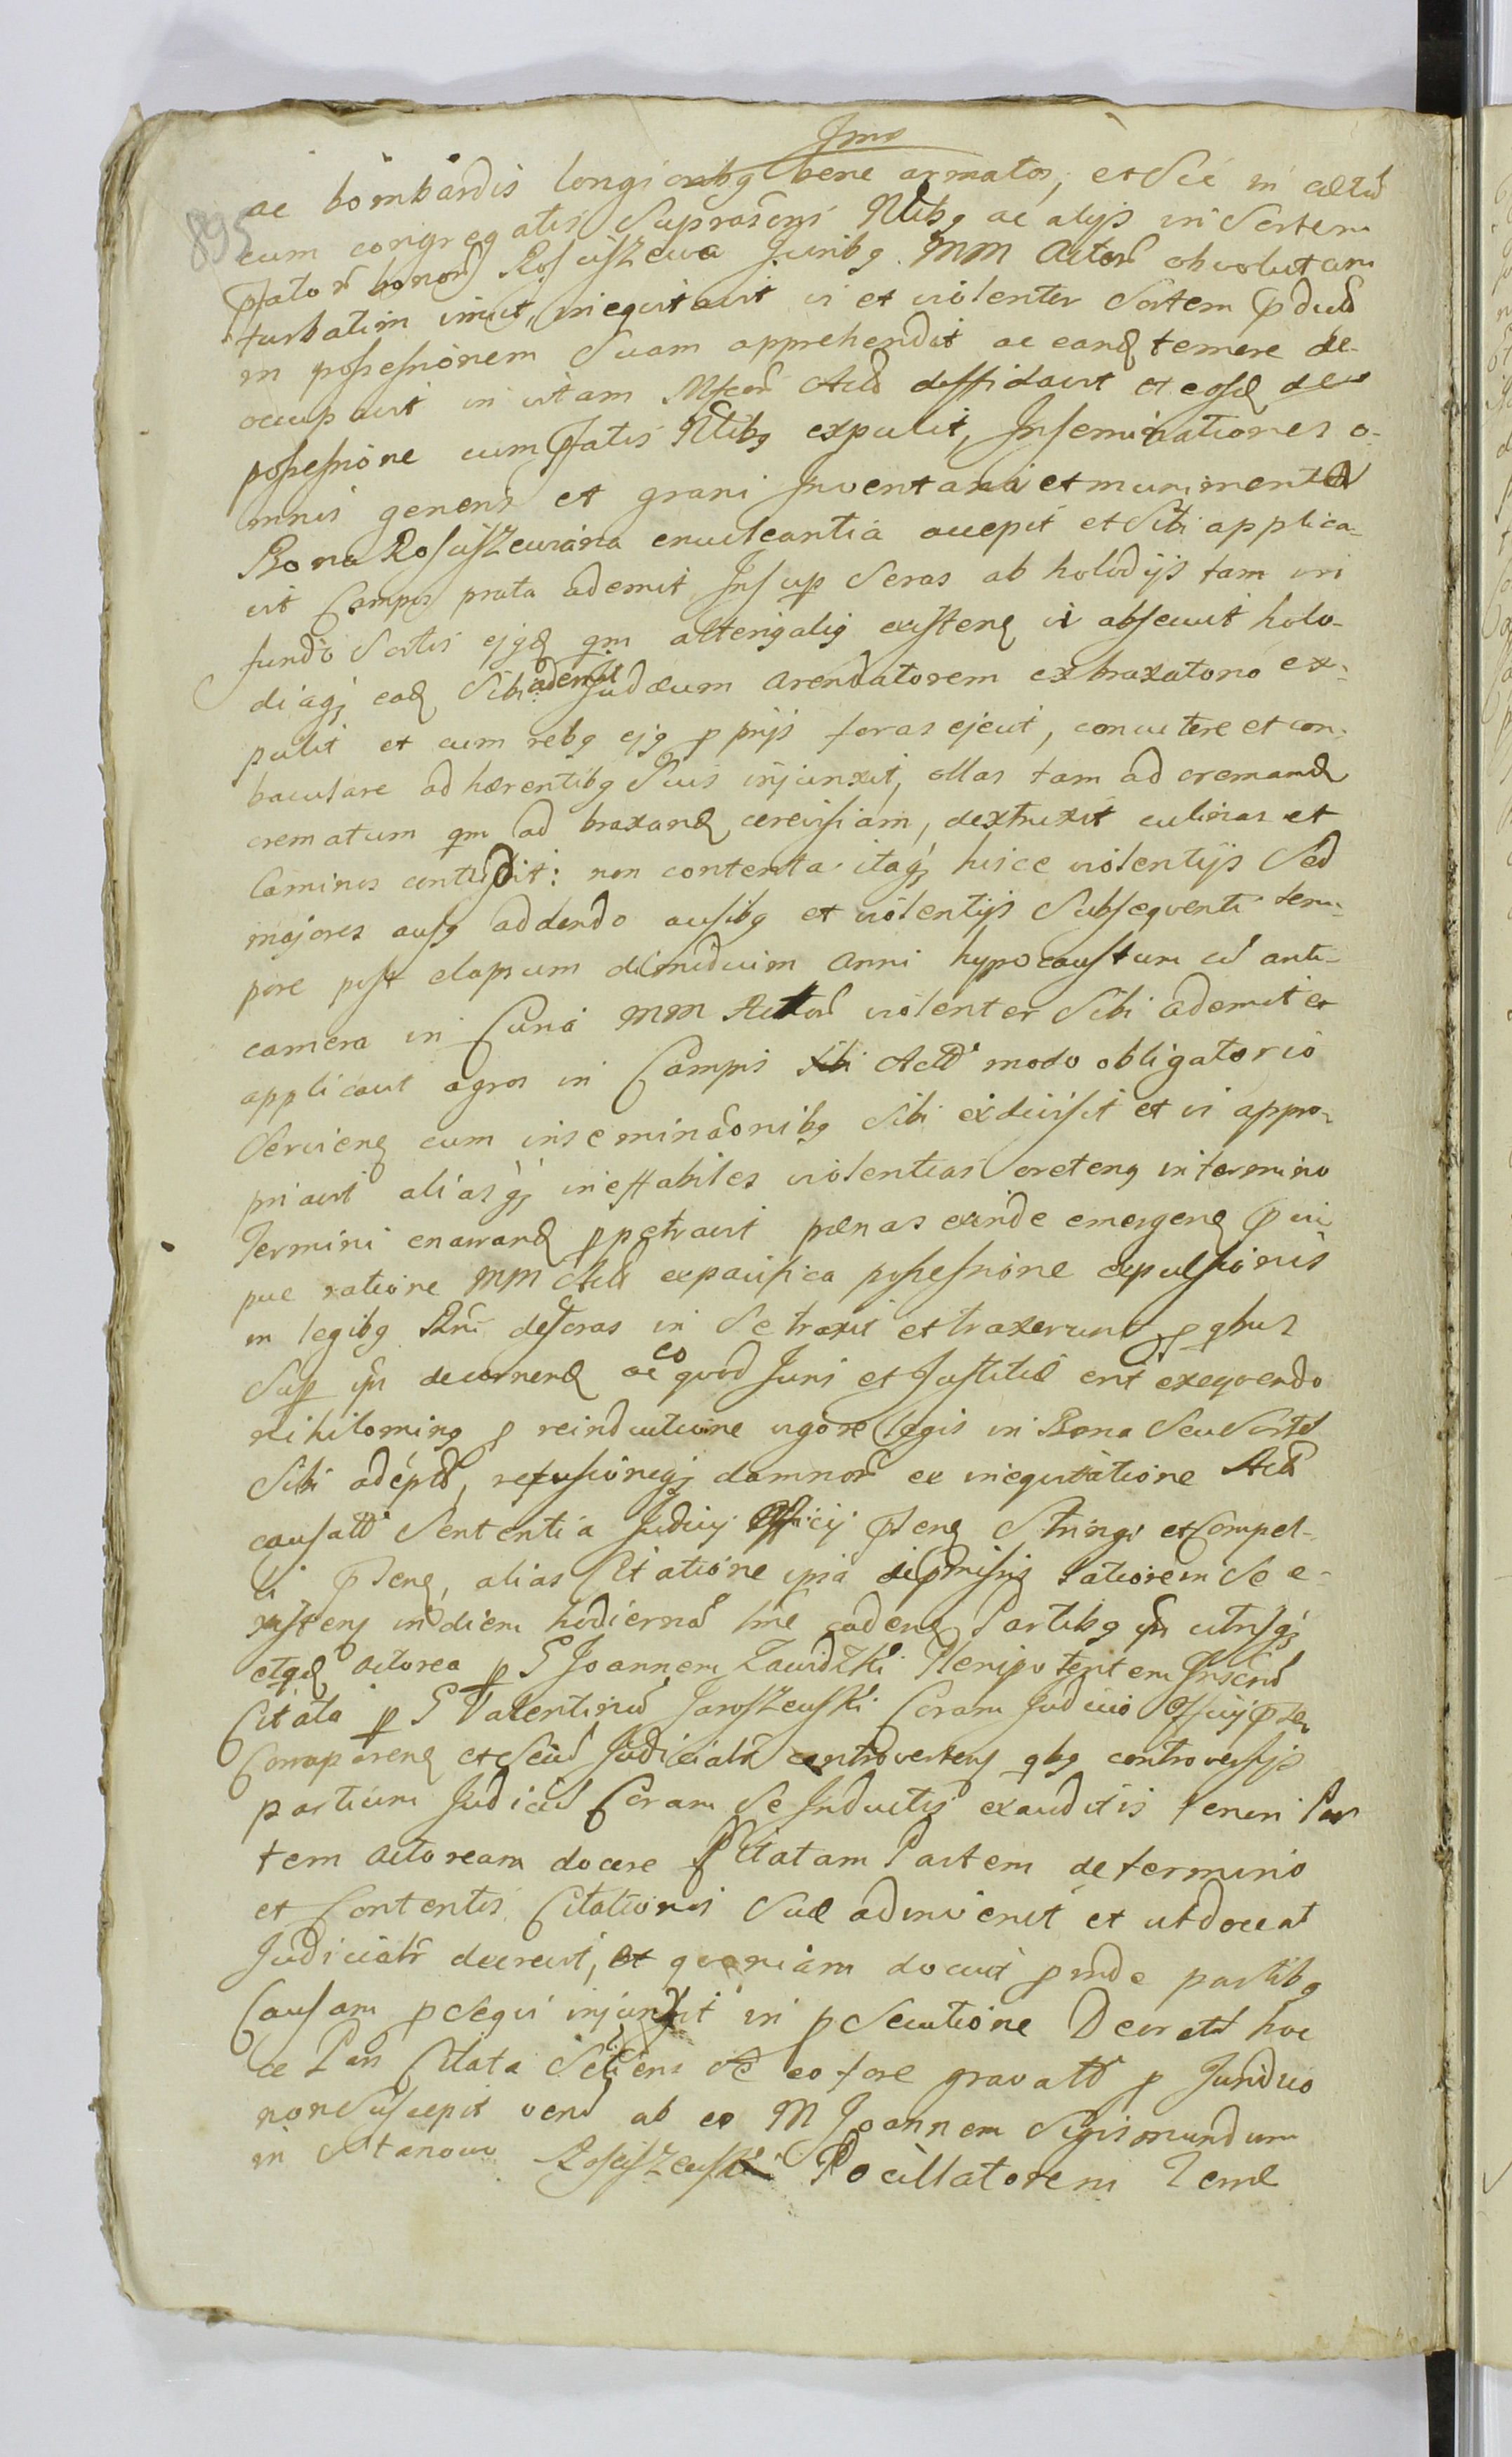 Imo
895
ac bombardis longioribg bene armatos, et sic in cætu
cum congregatis suprascris Nlibg ac alijs in sortem
pfator bonor Rosciszewa Juribg MM Actor obvolutam
turbatim irruit, inequitavit vi et violenter sortem pdu
in possessionem suam apprehendit ac eand temere de-
occupavit in vitam Mfcor Act diffidavit et eosd de
possessione cum pfatis Nlibg expulit, Inseminationes o-
mnis generis et grani Inventaria et munimenta
Bona Rosciszewiana concernentia accepit et sibi applica-
vit Campos prata ademit Insup seras ab holodijs tam in
fundo sortis ejgd qm alterigalig existen vi abscuit holo-
diaq ead sibi ademit Judæum arendatorem ex braxatorio ex-
pulit et cum rebg ejg pprijs foras ejecit, concutere et con-
baculare adhærentibg suis injunxit, ollas tam ad cremand
crematum qm ad braxand cerevisiam, dextruxit culinas et
Caminos contudit: non contenta itaq hisce violentijs sed
majores ausg addendo ausibg et violentijs subsequenti tem-
pore post elapsum dimidium anni hypocaustum cu anti-
camera in Curia MM Actor violenter sibi ademit et
applicavit agros in Campis sibi Act modo obligatorio
servien cum inseminaonibg sibi exdivisit et vi appro-
priavit aliasq ineffabiles violentias oreteng in termino
Termini enarrand ppetravit pænas exinde emergen præci
pue ratione MM Act ex pacifica possessione expulsionis
in legibg Rni descras in se traxit et traxerunt p qbus
sup ijs decernend ac eo quod Juri et Justitiæ erit exequendo
nihiloming p reinductione vigore legis in Bona seu sorte
sibi adempt, refusioneq damnor ex inequitatione Act
causatt sententia Judicij Officij pten stringi et compel-
li pten, alias Citatione ipsa de pmissis latiorem se e-
xisten in diem hodierna lme caden Partibg ijs utrisq
etqd actorea p G Joannem Zawidzki Plenipotentem Inscr
Citata p G Valentinu Jaroszewski Coram Judicio Officij pten
Comparen et secu Judicialr controverten qbg controversijs
partium Judiciu Coram se Inductis exauditis teneri Par
tem actoream docere Citatam Partem de termino
et Contentis Citationis suæ adinvenit et ut doceat
Judicialr decrevit, et quoniam docuit proinde partibg
Causam psequi injunxit in psecutione Decreti hoc
ce Pars Citata sentiens se eo fore gravatt p Juridico
non suscepit vero ab eo M Joannem Sigismundum
in Stanowo Rosciszewski Pocillatorem Terræ